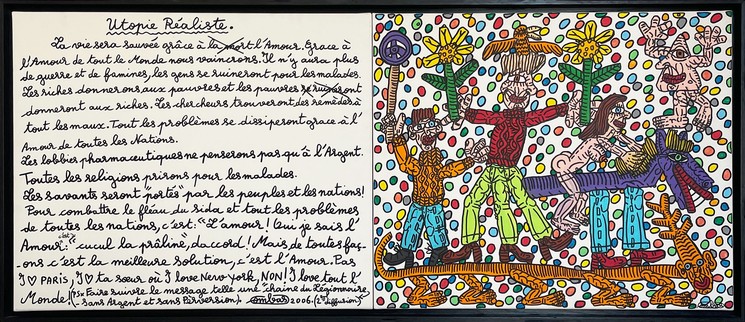 Utopie Réaliste.
La vie sera sauvée grâce à la mort l'Amour. Grace à
l'Amour de tout le Monde nous vaincrons. Il n'y aura plus
de guerre et de famines, les gens se ruineront pour les malades.
Les riches donnerons aux pauvres et les pauvres
donneront aux riches. Les chercheurs trouveront des remèdes à
tout les maux. Tout les problèmes se dissiperont grace à l'
Amour de toutes les Nations.
Les lobbies pharmaceutiques ne penserons pas qu'à l'Argent.
Toutes les religions prirons pour les malades.
Les savants seront "portés" par les peuples et les nations!
Pour combattre le fleau du sida et tout les problèmes
de toutes les nations, c'est: "L'amour! Oui je sais l'
Amour: c'est "cucul la praline, d'accord! Mais de toutes faç-
ons c'est la meilleure solution, c'est l'Amour. Pas
I ♡ PARIS, I ♡ ta sœur où I love New York, NON! I love tout l'
Monde! (P.S.: Faire suivre le message telle une "chaîne du Légionnaire,
sans Argent et sans Perversion) Combas 2006. (2e diffusion)